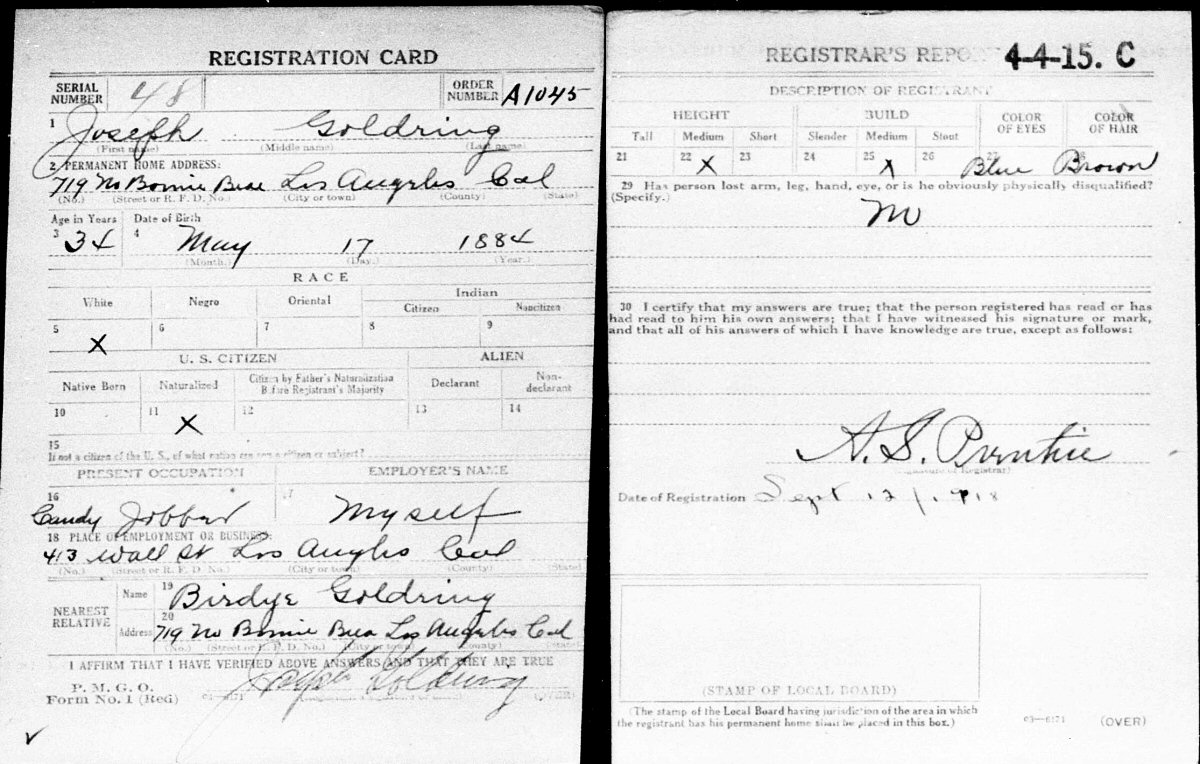 REGISTRATION CARD
SERIAL NUMBER 48 ORDER NUMBER A1045
1 Joseph Goldring
(First name) (Middle name) (Last name)
2 PERMANENT HOME ADDRESS:
719 No Bonnie Brae Los Angeles Cal
(No.) (Street or R. F. D. No.) (City or town) (County) (State)
Age in Years Date of Birth
3 34 4 May 17 1884
(Month.) (Day.) (Year.)
RACE
White Negro Oriental Indian
Citizen Noncitizen
5 X 6 7 8 9
U. S. CITIZEN ALIEN
Native Born Naturalized Citizen by Father's Naturalization Before Registrant's Majority Declarant Non-declarant
10 11 X 12 13 14
15
If not a citizen of the U. S., of what nation are you a citizen or subject?
PRESENT OCCUPATION EMPLOYER'S NAME
16 Candy Jobber 17 Myself
18 PLACE OF EMPLOYMENT OR BUSINESS:
413 Wall St Los Angeles Cal
(No.) (Street or R. F. D. No.) (City or town) (County) (State)
NEAREST RELATIVE
Name 19 Birdye Goldring
Address 20 719 No Bonnie Brea Los Angeles Cal
(No.) (Street or R. F. D. No.) (City or town) (County) (State)
I AFFIRM THAT I HAVE VERIFIED ABOVE ANSWERS AND THAT THEY ARE TRUE
P. M. G. O.
Form No. 1 (Red) 03—6171 Joseph Goldring
REGISTRAR'S REPORT 4-4-15. C
DESCRIPTION OF REGISTRANT
HEIGHT BUILD COLOR OF EYES COLOR OF HAIR
Tall Medium Short Slender Medium Stout
21 22 X 23 24 25 X 26 27 Blue 28 Brown
29 Has person lost arm, leg, hand, eye, or is he obviously physically disqualified?
(Specify.)
No
30 I certify that my answers are true; that the person registered has read or has
had read to him his own answers; that I have witnessed his signature or mark,
and that all of his answers of which I have knowledge are true, except as follows:
(Signature of Registrar)
Date of Registration Sept 12/1918
(STAMP OF LOCAL BOARD)
(The stamp of the Local Board having jurisdiction of the area in which
the registrant has his permanent home shall be placed in this box.)
03—6171 (OVER)